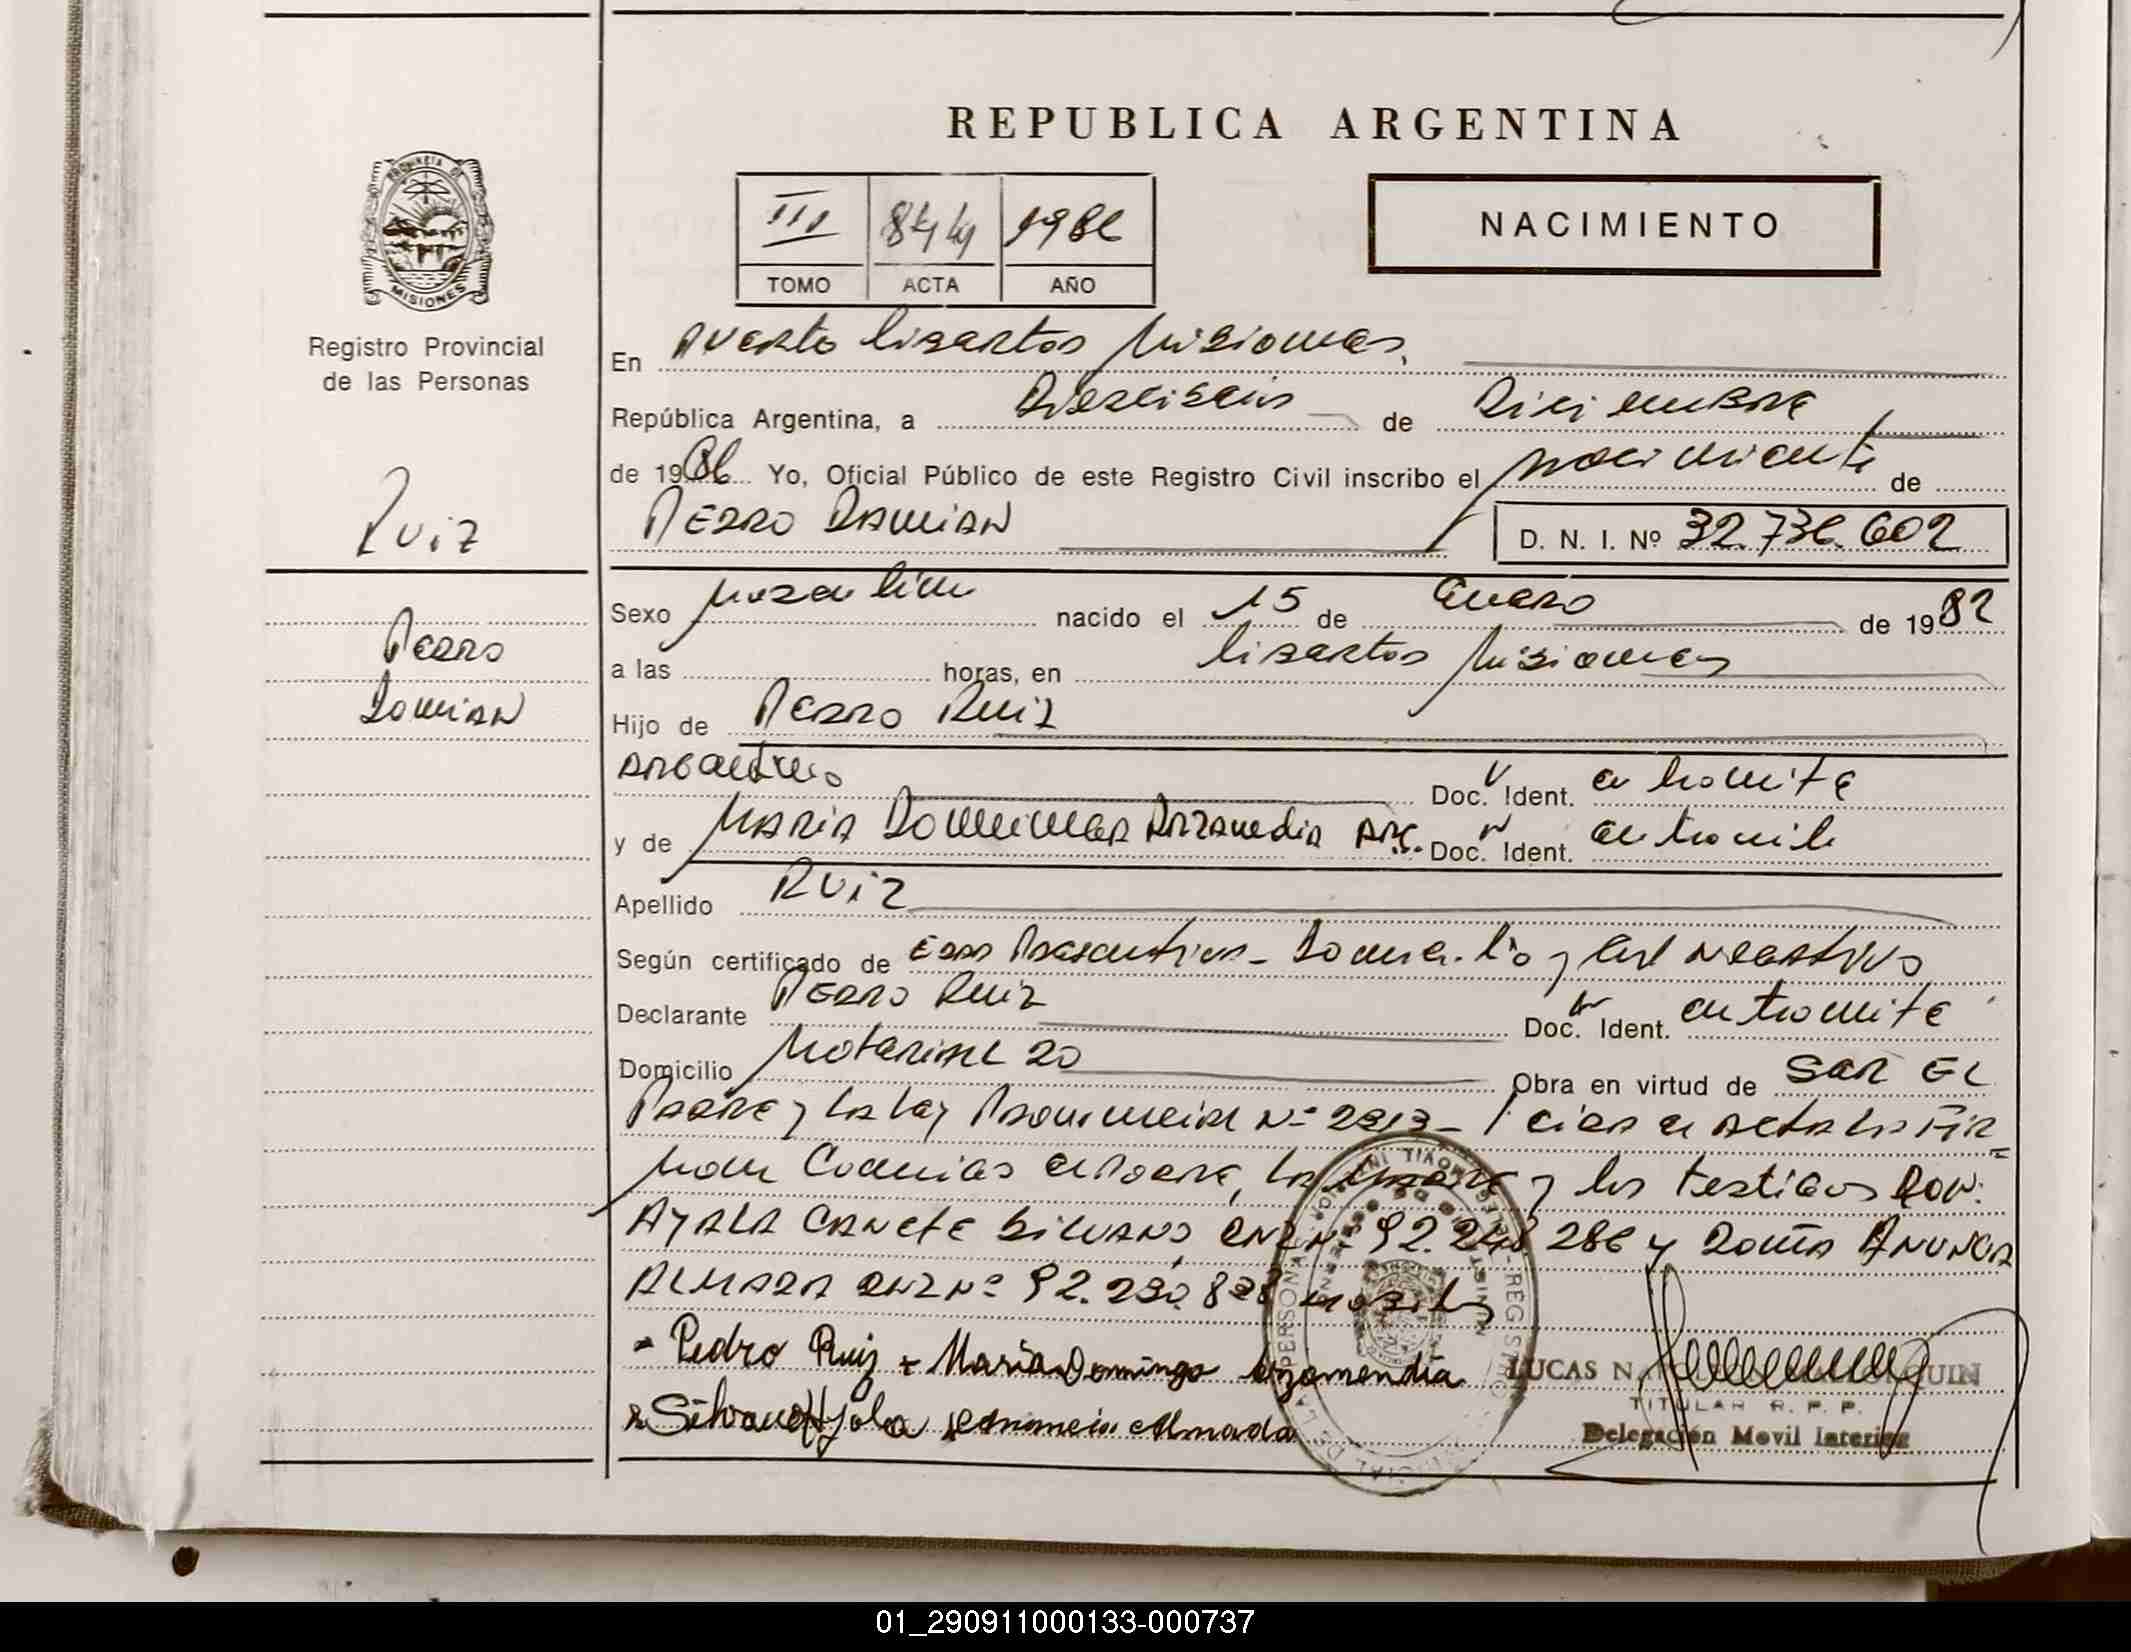 REPUBLICA ARGENTINA
III 844 1986
TOMO ACTA AÑO
NACIMIENTO
PROVINCIA DE
MISIONES
Registro Provincial
de las Personas
Ruiz
Pedro
Damian
En Puerto Libertad Misiones.
República Argentina, a Dieciseis de Diciembre
de 1986 Yo, Oficial Público de este Registro Civil inscribo el nacimiento de
PEDRO DAMIAN
D. N. I. Nº 32.736.602
Sexo Masculino nacido el 15 de Enero de 1982
a las horas, en Libertad Misiones
Hijo de Pedro Ruiz
Argentino Doc. Ident. en tramite
y de MARIA Dominga Arzamendia ARG. Doc. Ident. en tramite
Apellido RUIZ
Según certificado de Edad Presuntiva - Domicilio y Cert Negativo
Declarante PEDRO Ruiz Doc. Ident. en tramite
Domicilio Notarial 20 Obra en virtud de SER EL
PADRE y la Ley Provincial Nº 2313 - Leida el Acta la FIR=
man Conmigo el Padre, la Madre y los testigos Don:
AYALA CAÑETE SILVANO, DNI Nº 92.248 286 y Doña ANUNCIA
ALMADA DNI Nº 92.230.828
Pedro Ruiz + Maria Dominga Arzamendia
Silvano Ayala Anuncia Almada
LUCAS N. QUIN
TITULAR R. P. P.
Delegación Movil Interior
01_290911000133-000737